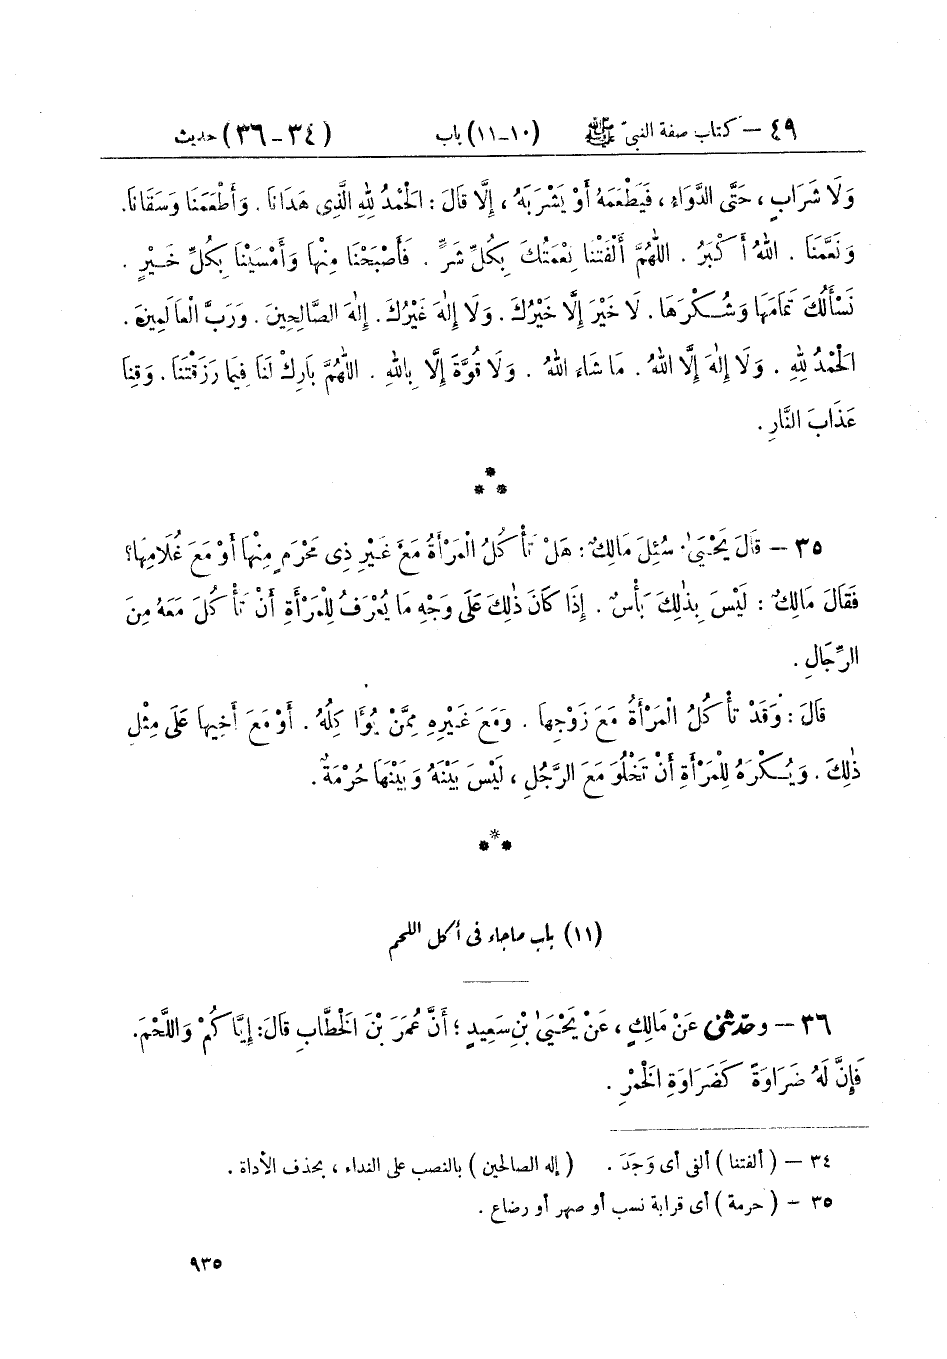 ٤٩ – كتاب صفة النبىّ ﷺ (١٠-١١) باب (٣٤-٣٦) حديث
وَلَا شَرَابٍ، حَتَّى الدَّوَاءِ، فَيَطْعَمَهُ أَوْ يَشْرَبَهُ، إِلَّا قَالَ: الْحَمْدُ لِلهِ الَّذِى هَدَانَا. وَأَطْعَمَنَا وَسَقَانَا.
وَنَعَّمَنَا. اللهُ أَكْبَرُ. اللّٰهُمَّ أَلْفَتْنَا نِعْمَتُكَ بِكُلِّ شَرٍّ. فَأَصْبَحْنَا مِنْهَا وَأَمْسَيْنَا بِكُلِّ خَيْرٍ.
نَسْأَلُكَ تَمَامَهَا وَشُكْرَهَا. لَا خَيْرَ إِلَّا خَيْرُكَ. وَلَا إِلٰهَ غَيْرُكَ. إِلٰهَ الصَّالِحِينَ. وَرَبَّ الْعَالَمِينَ.
الْحَمْدُ لِلهِ. وَلَا إِلٰهَ إِلَّا اللهُ. مَا شَاءَ اللهُ. وَلَا قُوَّةَ إِلَّا بِاللهِ. اللّٰهُمَّ بَارِكْ لَنَا فِيمَا رَزَقْتَنَا. وَقِنَا
عَذَابَ النَّارِ.
***
٣٥ – قَالَ يَحْيَىٰ: سُئِلَ مَالِكٌ: هَلْ تَأْكُلُ الْمَرْأَةُ مَعَ غَيْرِ ذِى مَحْرَمٍ مِنْهَا أَوْ مَعَ غُلَامِهَا؟
فَقَالَ مَالِكٌ: لَيْسَ بِذٰلِكَ بَأْسٌ. إِذَا كَانَ ذٰلِكَ عَلَى وَجْهِ مَا يُعْرَفُ لِلْمَرْأَةِ أَنْ تَأْكُلَ مَعَهُ مِنَ
الرِّجَالِ.
قَالَ: وَقَدْ تَأْكُلُ الْمَرْأَةُ مَعَ زَوْجِهَا. وَمَعَ غَيْرِهِ مِمَّنْ يُؤَاكِلُهُ. أَوْ مَعَ أَخِيهَا عَلَى مِثْلِ
ذٰلِكَ. وَيُكْرَهُ لِلْمَرْأَةِ أَنْ تَخْلُوَ مَعَ الرَّجُلِ، لَيْسَ بَيْنَهُ وَبَيْنَهَا حُرْمَةٌ.
***
(١١) باب ماجاء فى أكل اللحم
٣٦ – وحدّثنى عَنْ مَالِكٍ، عَنْ يَحْيَىٰ بْنِ سَعِيدٍ؛ أَنَّ عُمَرَ بْنَ الْخَطَّابِ قَالَ: إِيَّاكُمْ وَاللَّحْمَ.
فَإِنَّ لَهُ ضَرَاوَةً كَضَرَاوَةِ الْخَمْرِ.
٣٤ – (ألفتنا) ألفى أى وَجَدَ. (إله الصالحين) بالنصب على النداء، بحذف الأداة.
٣٥ – (حرمة) أى قرابة نسب أو صهر أو رضاع.
٩٣٥